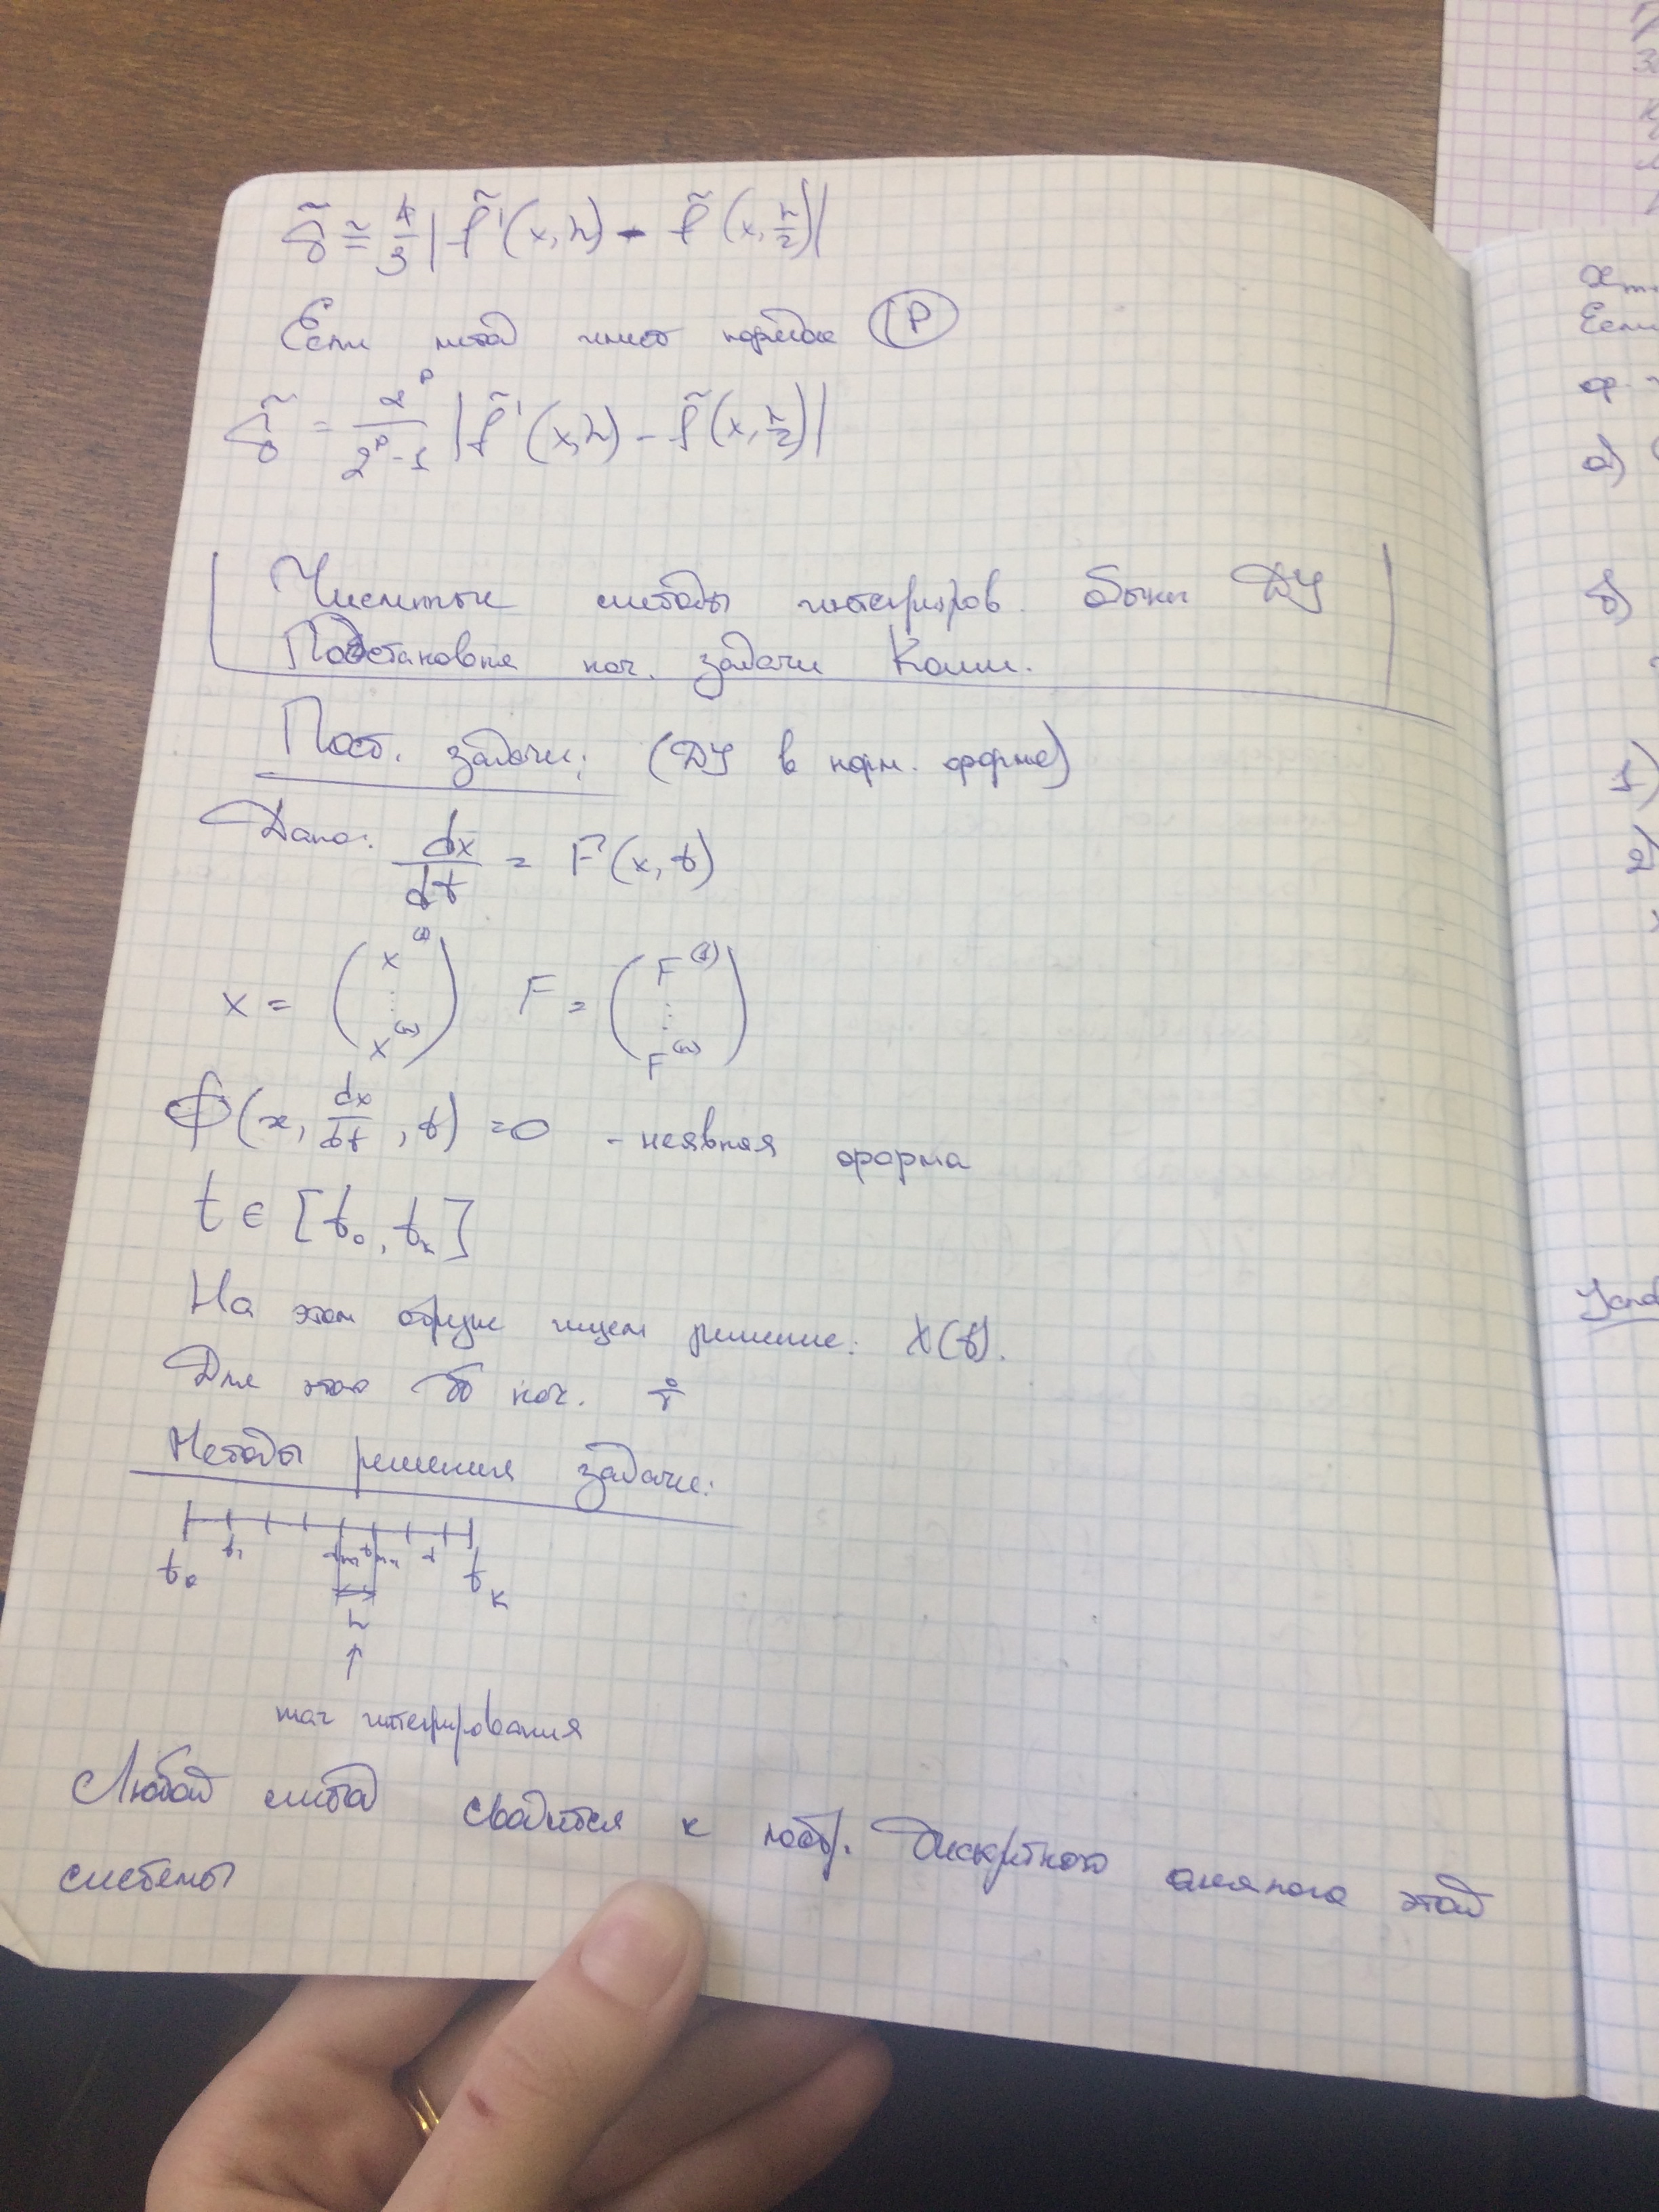 δ̃ ≅ 4/3 | f̃'(x, h) - f̃(x, h/2) |
Если метод имеет порядок (P)
δ̃ = 2^P / (2^P - 1) | f̃'(x, h) - f̃(x, h/2) |
Численные методы интегриров. обыкн ДУ
Постановка нач. задачи Коши.
Пост. задачи: (ДУ в норм. форме)
Дано: dx/dt = F(x, t)
x = ( x^(1) ⋮ x^(n) ) F = ( F^(1) ⋮ F^(n) )
Ф(x, dx/dt, t) = 0 - неявная форма
t ∈ [t₀, tₖ]
На этом отрезке ищем решение: X(t).
Для этого нач.
Методы решения задачи:
t₀ t₁ tₖ
h
↑
шаг интегрирования
Любой метод сводится к постр. дискретного аналога этой
системы
Если
a)
б)
1)
2)